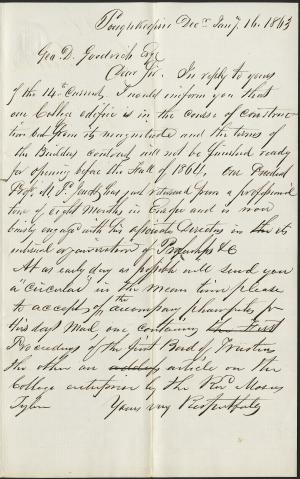 Poughkeepsie Dec Jany. 16. 1863
Geo. D. Goodrich Esq
Dear Sir. In reply to yours
of the 14th Current, I would inform you that
our College edifice is in the course of construc-
tion but from its magnitude and the terms of
the Builders contract will not be finished ready
for opening before the Fall of 1864, Our President
Prof. M. P. Jewett has just returned from a professional
tour of eight Months in Europe and is now
busily engaged with his associate Directors in the its
internal organization of &c
At as early day as possible will send you
a "circular" in the mean time please
to accept of the accompany pamphlets per
this days Mail one containing the First
Proceedings of the first Board of Trustees
the other an article on the
College enterprise by the Revd Moses
Tyler Yours very Respectfully